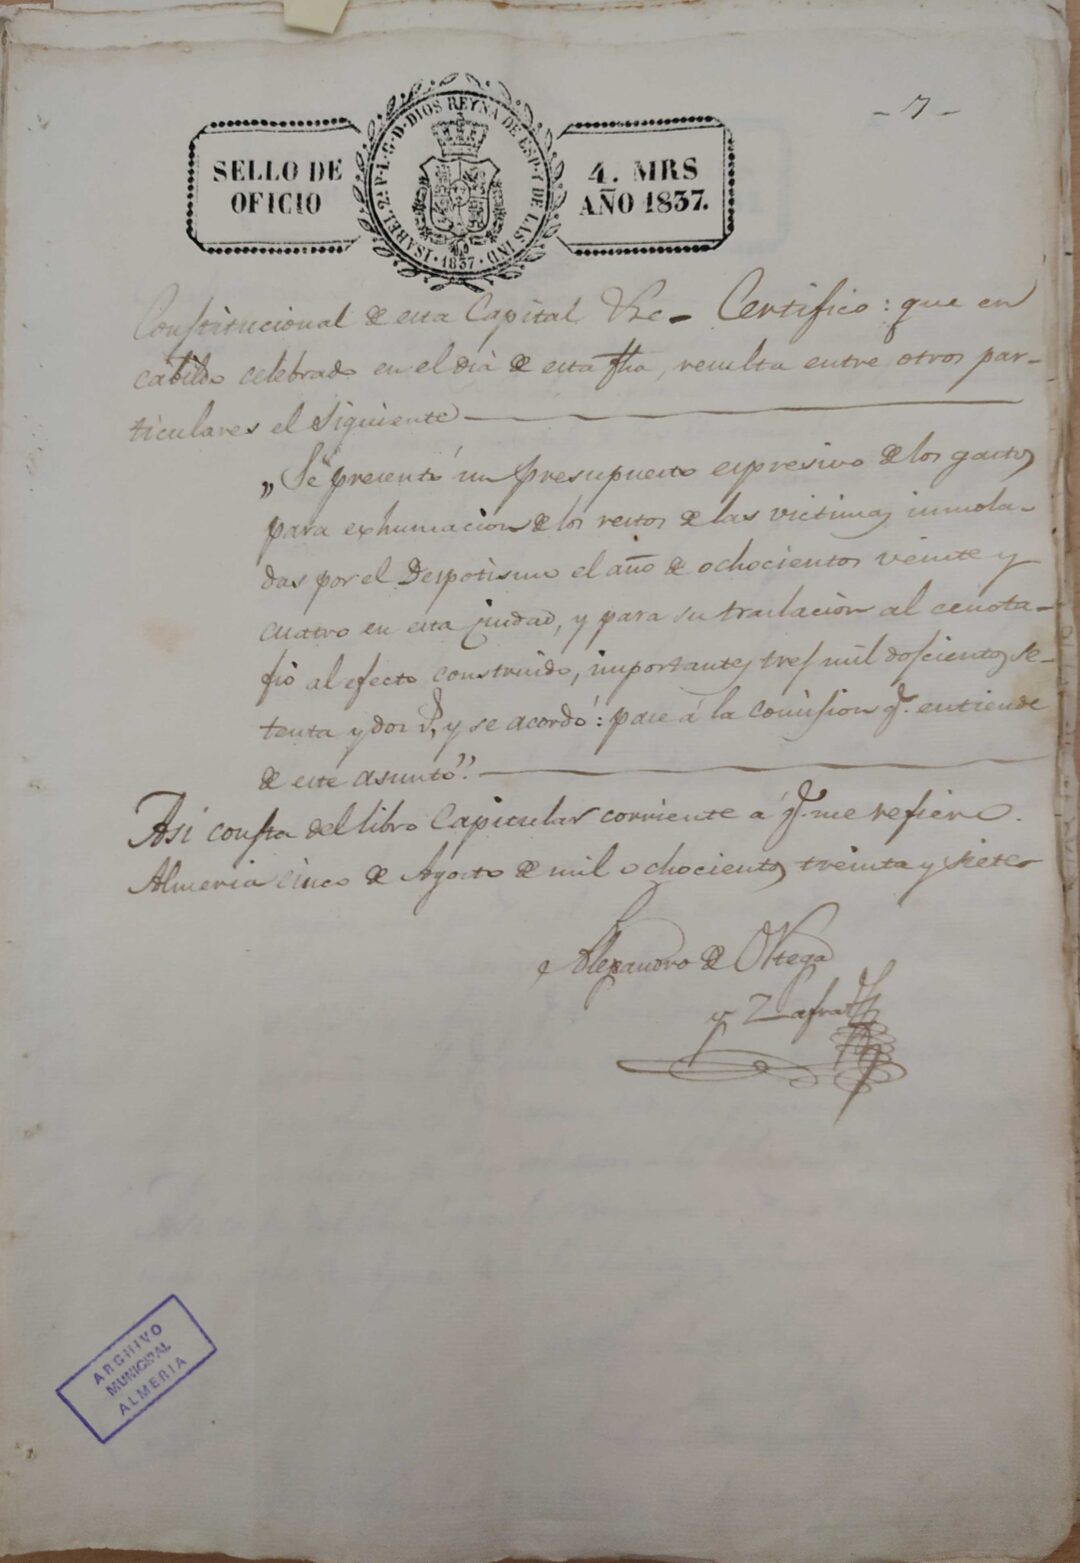 - 7 -
SELLO DE
OFICIO
ISABEL 2ª P. L. G. D. DIOS REYNA DE ESP. Y DE LAS IND.
· 1837 ·
4. MRS
AÑO 1837.
Constitucional de esta Capital &c- Certifico: que en
cabildo celebrado en el dia de esta fha, resulta entre otros par-
ticulares el siguiente
„Se presentó un presupuesto espresivo de los gastos
para exhumacion de los restos de las victimas inmola-
das por el Despotismo el año de ochocientos veinte y
cuatro en esta Ciudad, y para su traslacion al cenota-
fio al efecto construido, importantes tres mil doscientos se-
tenta y dos r.s, y se acordó: pase á la comision q.e entiende
de este asunto".
Asi consta del libro Capitular corriente á q.e me refiero.
Almeria cinco de Agosto de mil ochocientos treinta y siete
Alexandro de Ortega
y Zafra
ARCHIVO
MUNICIPAL
ALMERIA